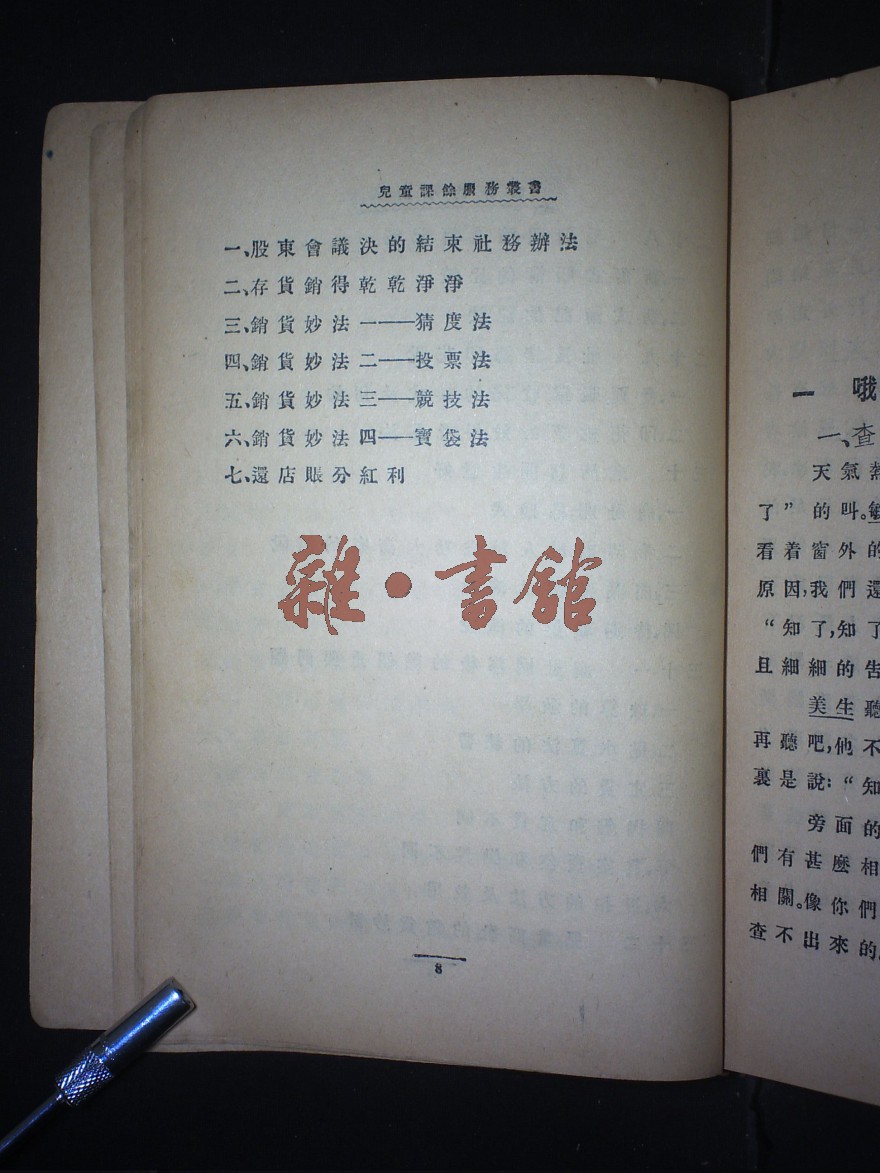 兒童課餘服務叢書
一、股東會議決的結束社務辦法
二、存貨銷得乾乾淨淨
三、銷貨妙法一——猜度法
四、銷貨妙法二——投票法
五、銷貨妙法三——競技法
六、銷貨妙法四——寶袋法
七、還店賬分紅利
雜·書館
8
一 哦
一、查
天氣熱
了”的叫。
看着窗外的
原因,我們還
“知了,知了
且細細的告
美生聽
再聽吧,他不
裏是說:“知
旁面的
們有甚麼相
相關。像你們
查不出來的。